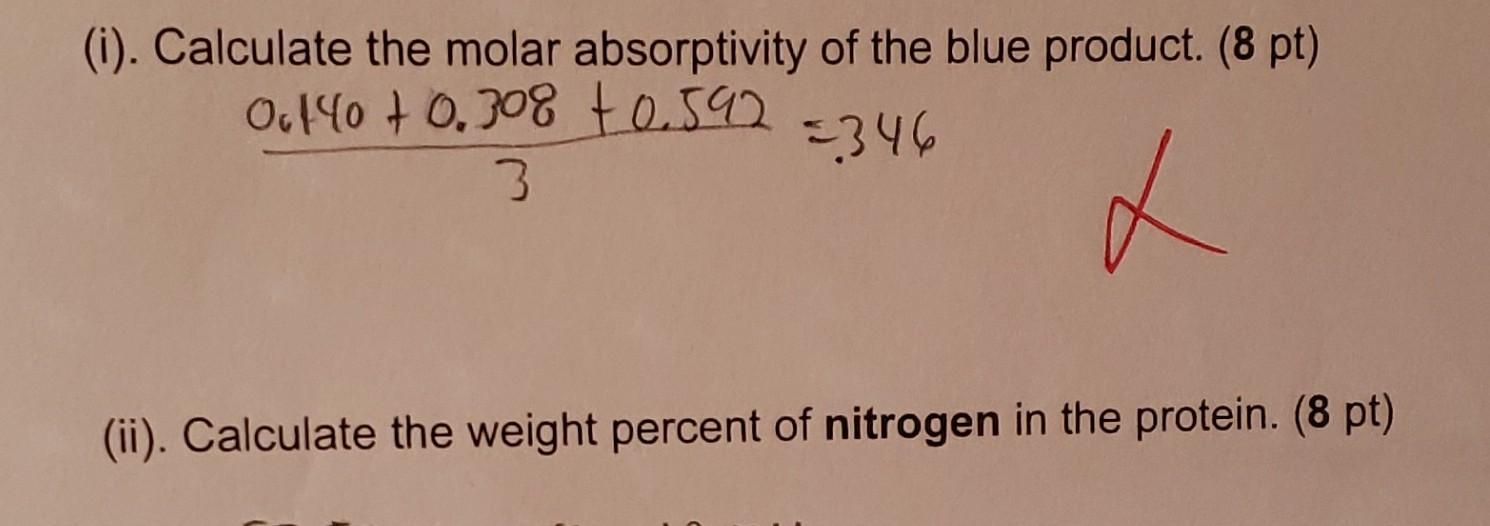 (i). Calculate the molar absorptivity of the blue product. (8 pt)
0.140 + 0.308 + 0.592 =.346
3
(ii). Calculate the weight percent of nitrogen in the protein. (8 pt)